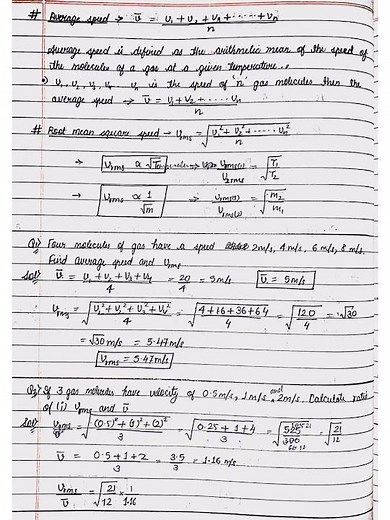 # Average speed → v̄ = v₁ + v₂ + v₃ + ...... + vₙ / n
Average speed is defined as the arithmetic mean of the speed of
the molecules of a gas at a given temperature.
v₁, v₂, v₃, ... vₙ is the speed of 'n' gas molecules then the
average speed → v̄ = v₁ + v₂ + ..... vₙ / n
# Root mean square speed → vrms = √(v₁² + v₂² + ...... vₙ² / n)
→ vrms ∝ √Temperature → vrms(1) / v2rms = √(T₁ / T₂)
→ vrms ∝ 1/√m → vrms(1) / vrms(2) = √(m₂ / m₁)
Q1) Four molecules of gas have a speed 2m/s, 4m/s, 6 m/s, 8 m/s.
Find average speed and vrms
Sol: v̄ = v₁ + v₂ + v₃ + v₄ / 4 = 20/4 = 5m/s v̄ = 5m/s
vrms = √(v₁² + v₂² + v₃² + v₄² / 4) = √(4 + 16 + 36 + 64 / 4) = √(120 / 4) = √30
= √30 m/s = 5.47m/s
vrms = 5.47m/s
Q2) If 3 gas molecules have velocity of 0.5m/s, 1m/s and 2m/s. Calculate ratio
of (i) vrms and v̄
Sol: vrms = √((0.5)² + (1)² + (2)² / 3) = √(0.25 + 1 + 4 / 3) = √(525 / 300) = √(21 / 12)
v̄ = 0.5 + 1 + 2 / 3 = 3.5 / 3 = 1.16 m/s
vrms / v̄ = √(21 / 12) × 1 / 1.16